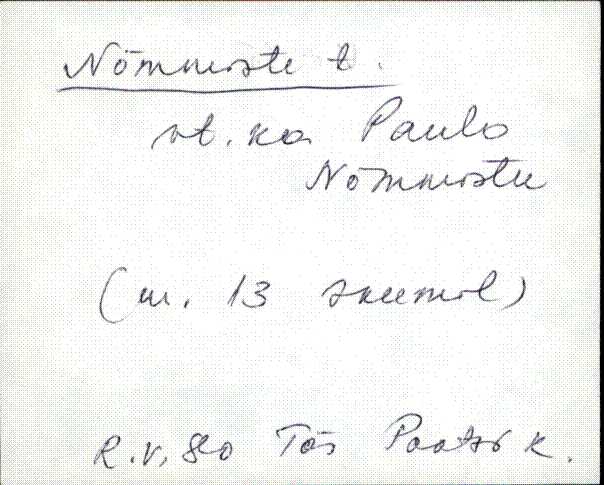 Nõmmiste t.
vt. ka Paulo
Nõmmiste
(nr. 13 skeemil)
R.V. 80 Tõs Pootsi k.